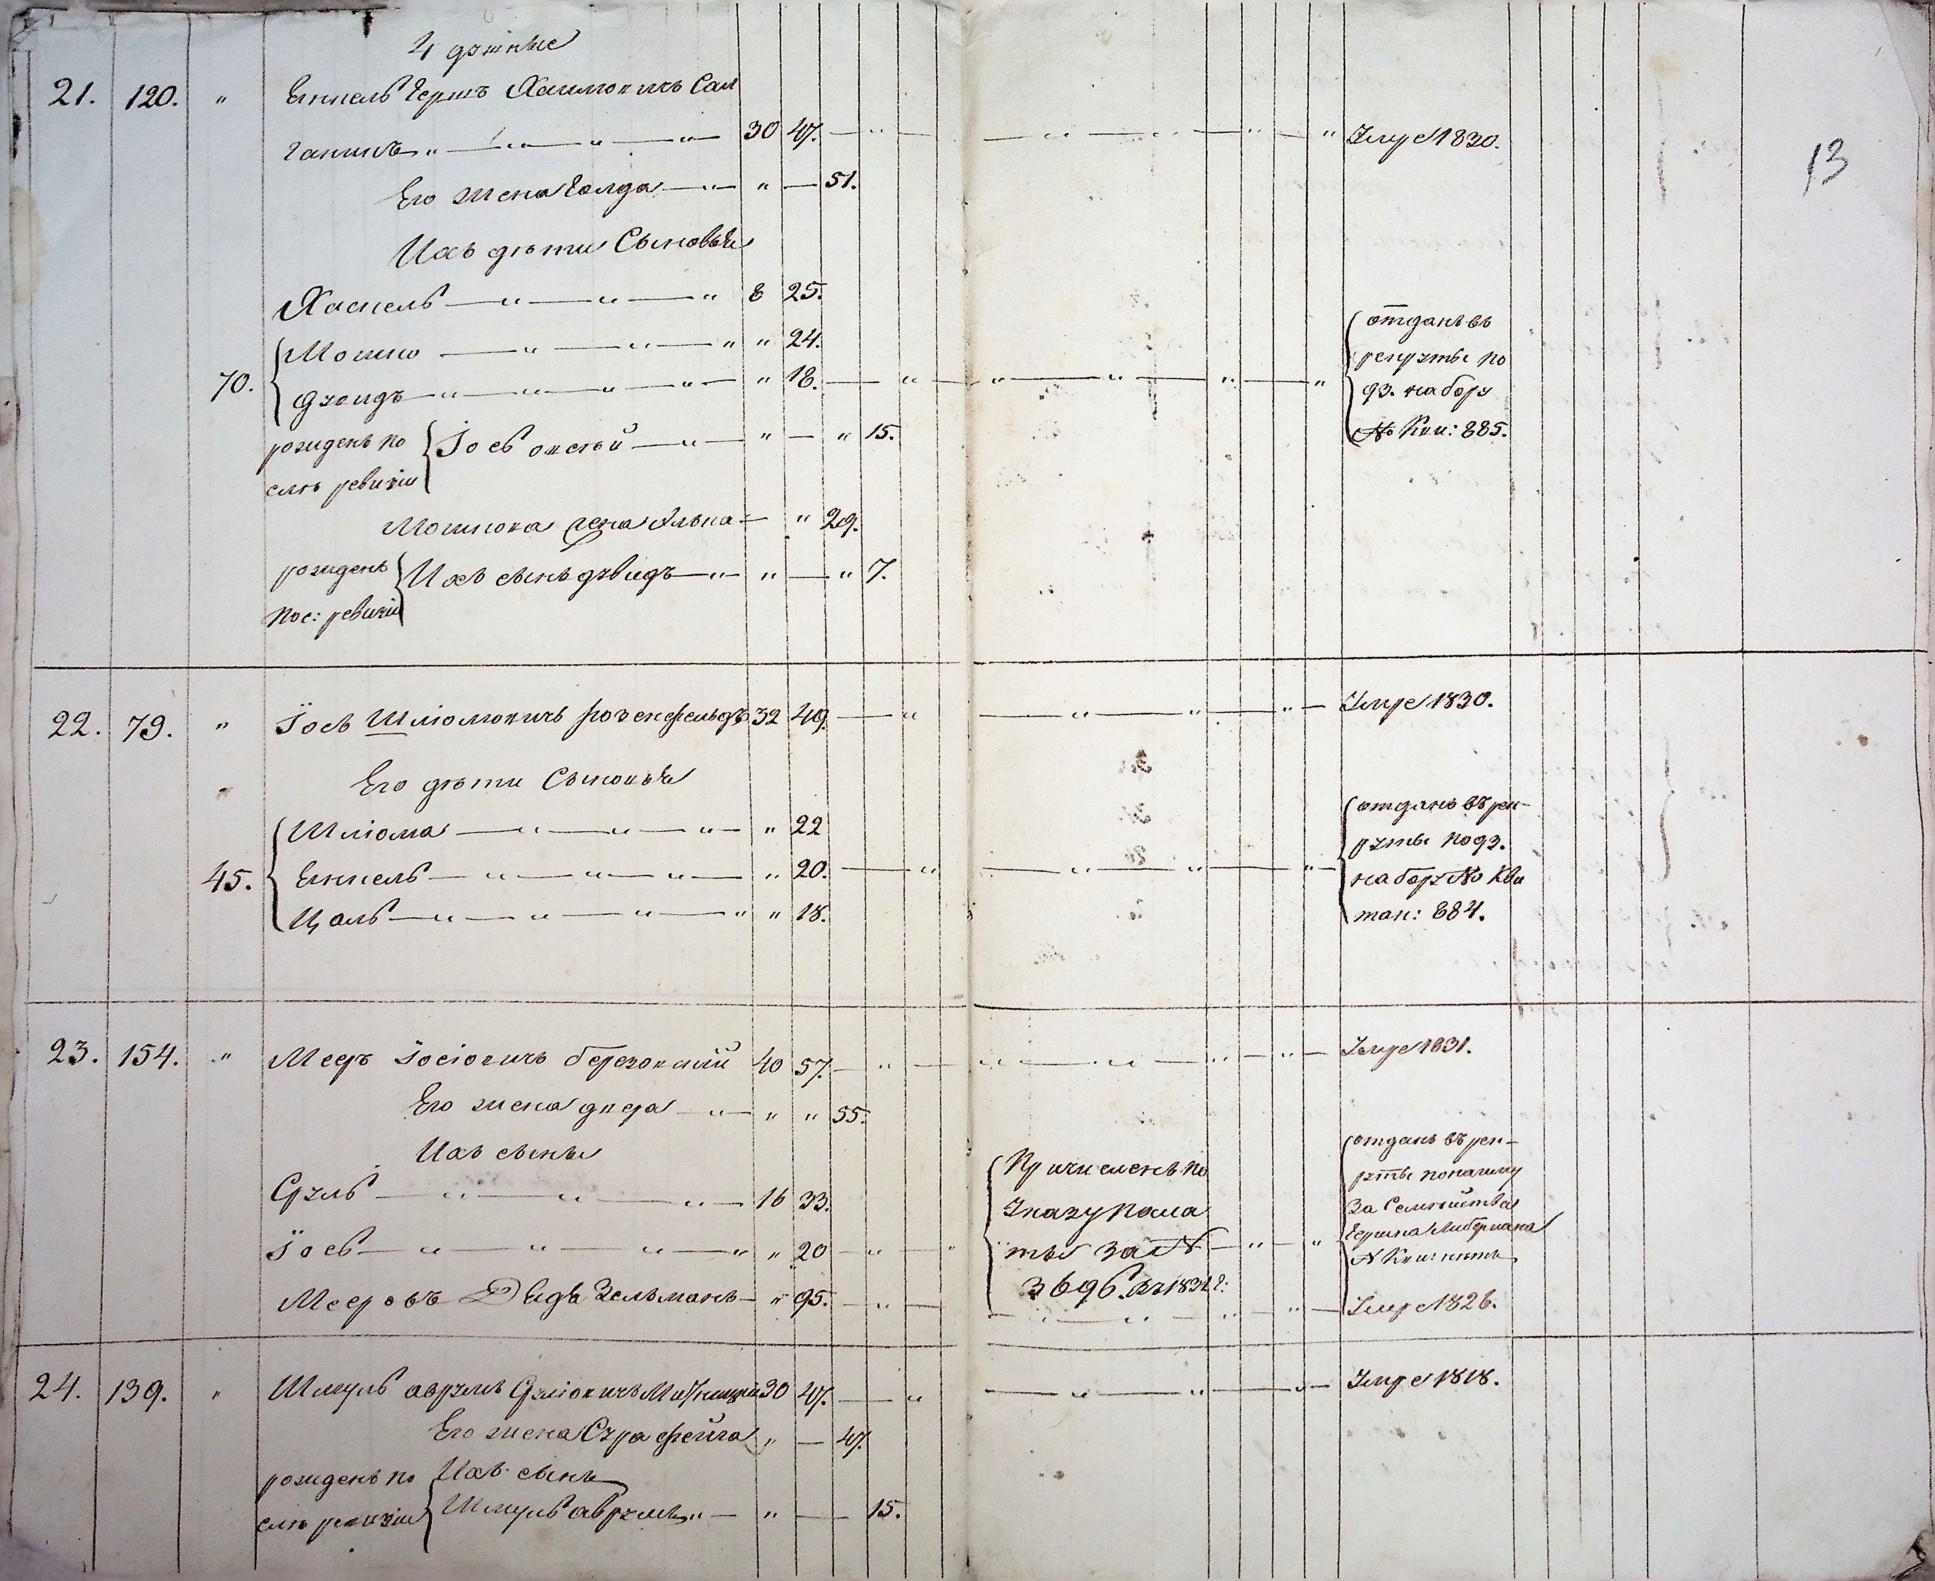 4 дутные
21. 120. " Янкель Герш Хаимовичъ Сал
ганикъ " — " — " — " — 30 47. — " — — " — " — " — " Умре 1830.
13
Его жена Голда — " — " — 51.
Ихъ дѣти Сыновья
Хаскель — " — " — " 8 25.
Мошко — " — " — " " 24.
70. Дувидъ — " — " — " — " 18. — " — " — " — " — "
отданъ въ
рекруты по
93. набору
№ Кви: 885.
рожденъ по
слѣ ревизіи
Іось овсѣй — " — " — " 15.
Мошкова жена Элька — " 29.
рожденъ
пос: ревизіи
Ихъ сынъ дувидъ — " — " — " 7.
22. 79. " Іось Шліомовичъ розенфельдъ 32 49. — " — " — " — " — Умре 1830.
Его дѣти Сыновья
Шліома — " — " — " — " 22
45. Янкель — " — " — " — " 20. — " — " — " — "
Цаль — " — " — " — " " 18.
отданъ въ рек-
руты по 93.
набору № Кви
тан: 884.
23. 154. " Мееръ Іосіовичъ березовскій 40 57. — " — " — " — " — " — Умре 1831.
Его жена двера — " — " " 55.
Ихъ сыны
Сруль — " — " — " — 16 33.
Іось — " — " — " — " " 20 — " — "
Причисленъ по
Указу Пала
ты за №
3696. въ 1834 г:
отданъ въ рек-
руты поначету
за Семѣйства
Гершка Либермана
№ Кви: пять
Мееровъ Дядь Зельманъ — " 95. — " — " — " — " — " — Умре 1826.
24. 139. " Шмуль аврумъ Сруліовичъ 30 47. — " — " — " — " — Умре 1818.
Его жена Сура фейга " — 47.
рожденъ по
слѣ ревизіи
Ихъ сынъ
Шмуль аврумъ " — " — — 15.